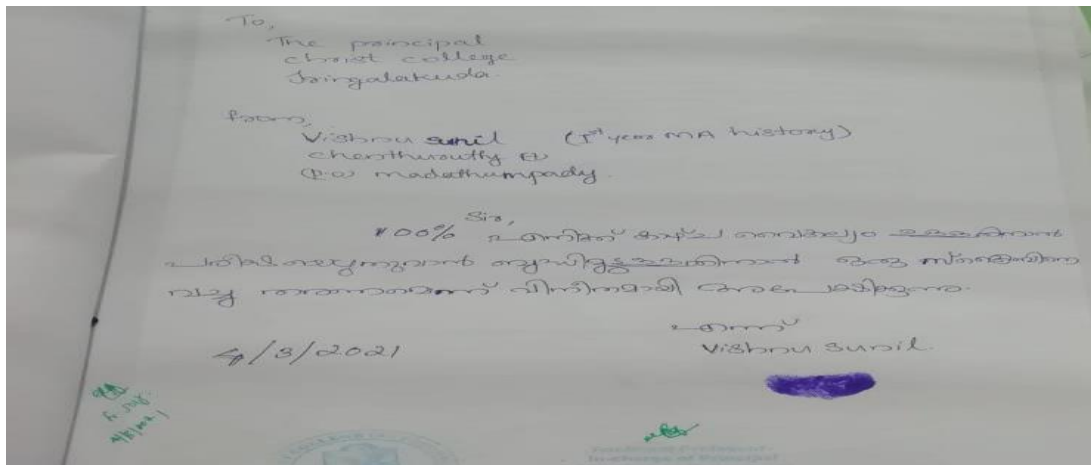 To,
The principal
Christ college
Iringalakuda.
from,
Vishnu sunil (1st year MA history)
Chenthurutty (H)
(P.O) madathumpady.
Sir,
100% എനിക്ക് കാഴ്ച വൈകല്യം ഉള്ളതിനാൽ
പരീക്ഷ എഴുതുവാൻ ബുദ്ധിമുട്ടുള്ളതിനാൽ ഒരു സ്ക്രൈബിനെ
വച്ചു തരണമെന്ന് വിനീതമായി അപേക്ഷിക്കുന്നു.
എന്ന്
4/3/2021 Vishnu Sunil.
In-charge of Principal